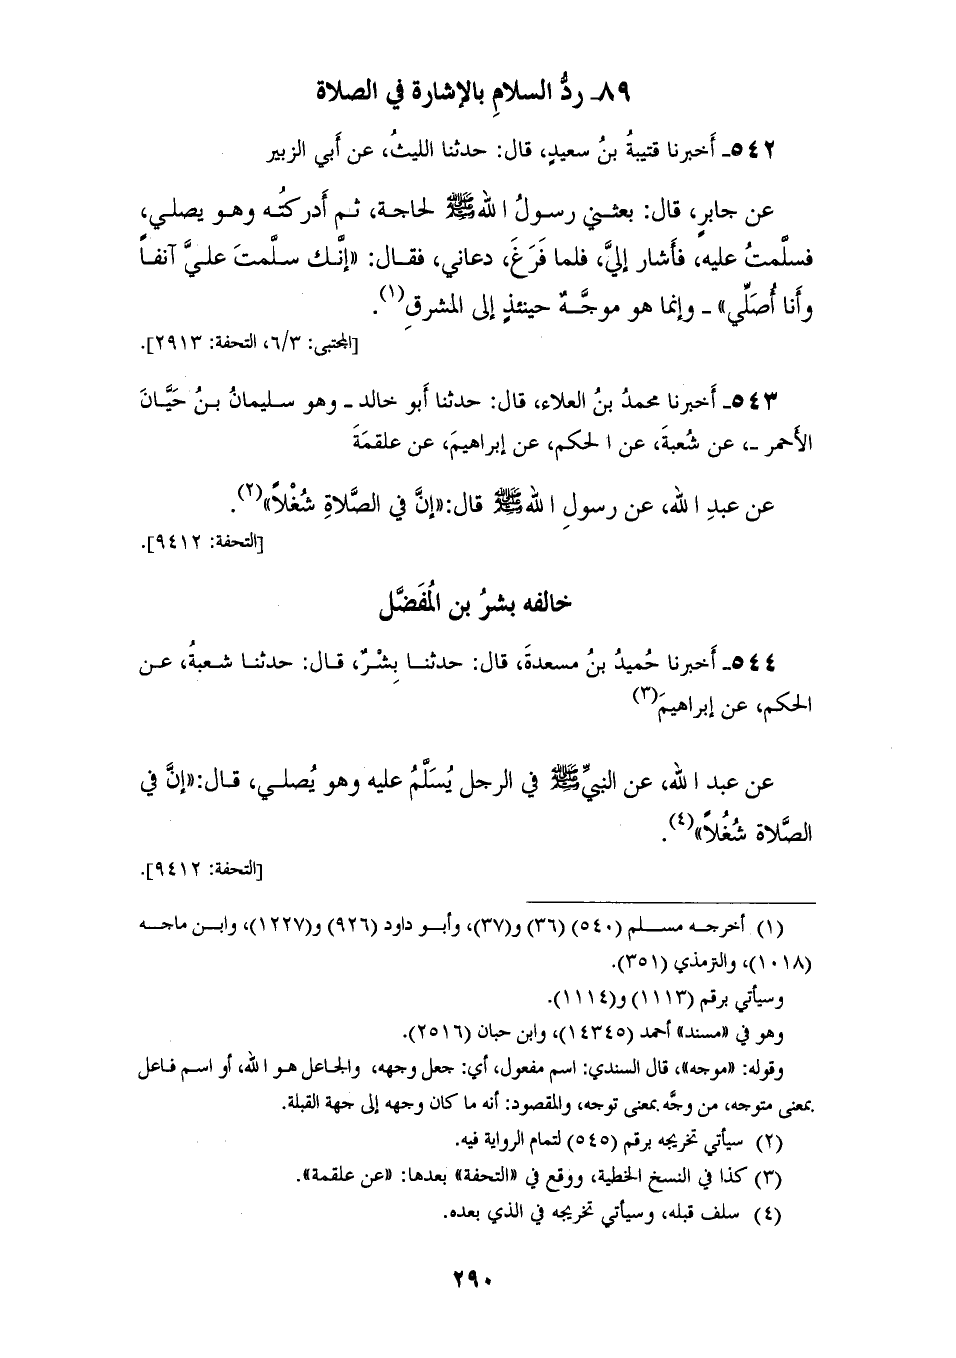 ٨٩ـ ردُّ السلامِ بالإشارة في الصلاة
٥٤٢ـ أَخبرنا قتيبةُ بنُ سعيدٍ، قال: حدثنا الليثُ، عن أَبي الزبير
عن جابرٍ، قال: بعثـني رسولُ الله ﷺ لحاجـة، ثـم أَدركتُـه وهـو يصلـي،
فسلَّمتُ عليه، فأَشار إليَّ، فلما فَرَغَ، دعاني، فقـال: «إنَّـك سـلَّمتَ علـيَّ آنفـاً
وأَنا أُصَلِّي» ـ وإنما هو موجَّـهٌ حينئذٍ إلى المشرقِ(١).
[المجتبى: ٦/٣، التحفة: ٢٩١٣].
٥٤٣ـ أَخبرنا محمدُ بنُ العلاء، قال: حدثنا أَبو خالد ـ وهو سـليمانُ بـنُ حَيَّـانَ
الأَحمر ـ، عن شُعبةَ، عن الحكم، عن إبراهيمَ، عن علقمَةَ
عن عبدِ الله، عن رسولِ الله ﷺ قال:«إنَّ في الصَّلاةِ شُغْلاً»(٢).
[التحفة: ٩٤١٢].
خالفه بشرُ بن المُفَضَّل
٥٤٤ـ أَخبرنا حُميدُ بنُ مسعدةَ، قال: حدثنـا بِشْـرٌ، قـال: حدثنـا شـعبةُ، عـن
الحكم، عن إبراهيمَ(٣)
عن عبد الله، عن النبيِّ ﷺ في الرجل يُسَلَّمُ عليه وهو يُصلـي، قـال:«إنَّ في
الصَّلاة شُغُلاً»(٤).
[التحفة: ٩٤١٢].
(١) أخرجـه مسـلم (٥٤٠) (٣٦) و(٣٧)، وأبـو داود (٩٢٦) و(١٢٢٧)، وابـن ماجـه
(١٠١٨)، والترمذي (٣٥١).
وسيأتي برقم (١١١٣) و(١١١٤).
وهو في «مسند» أحمد (١٤٣٤٥)، وابن حبان (٢٥١٦).
وقوله: «موجه»، قال السندي: اسم مفعول، أي: جعل وجهه، والجاعل هـو الله، أو اسـم فـاعل
بمعنى متوجه، من وجَّه بمعنى توجه، والمقصود: أنه ما كان وجهه إلى جهة القبلة.
(٢) سيأتي تخريجه برقم (٥٤٥) لتمام الرواية فيه.
(٣) كذا في النسخ الخطية، ووقع في «التحفة» بعدها: «عن علقمة».
(٤) سلف قبله، وسيأتي تخريجه في الذي بعده.
٢٩٠